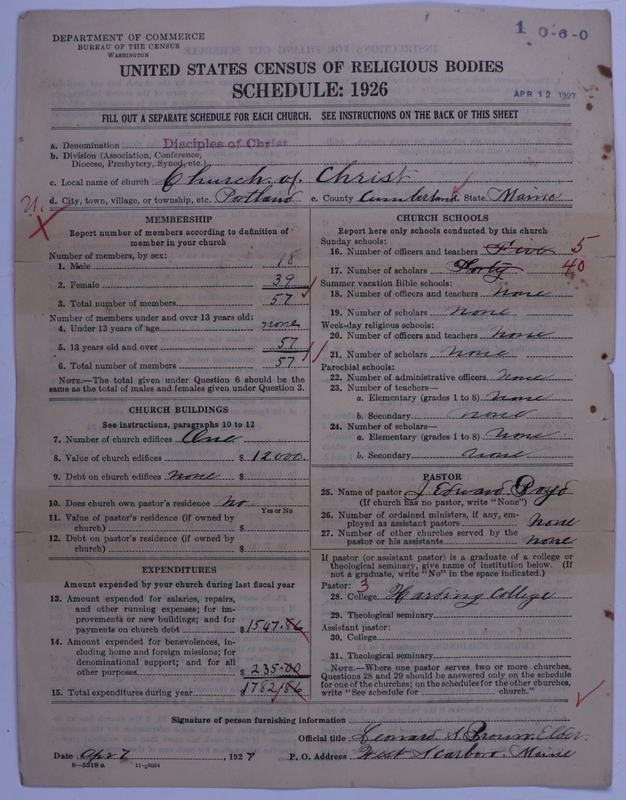 1 0-6-0
DEPARTMENT OF COMMERCE
BUREAU OF THE CENSUS
WASHINGTON
UNITED STATES CENSUS OF RELIGIOUS BODIES
SCHEDULE: 1926
APR 12 1927
FILL OUT A SEPARATE SCHEDULE FOR EACH CHURCH. SEE INSTRUCTIONS ON THE BACK OF THIS SHEET
a. Denomination Disciples of Christ
b. Division (Association, Conference,
Diocese, Presbytery, Synod, etc.)
c. Local name of church Church of Christ
d. City, town, village, or township, etc. Portland e. County Cumberland State Maine
U.
X
MEMBERSHIP
Report number of members according to definition of
member in your church
Number of members, by sex:
1. Male 18
2. Female 39
3. Total number of members 57
Number of members under and over 13 years old:
4. Under 13 years of age none
5. 13 years old and over 57
6. Total number of members 57
NOTE.—The total given under Question 6 should be the
same as the total of males and females given under Question 3.
CHURCH BUILDINGS
See instructions, paragraphs 10 to 12
7. Number of church edifices One
8. Value of church edifices $ 12000
9. Debt on church edifices none $
10. Does church own pastor's residence? No
Yes or No
11. Value of pastor's residence (if owned by
church) $
12. Debt on pastor's residence (if owned by
church) $
EXPENDITURES
Amount expended by your church during last fiscal year
13. Amount expended for salaries, repairs,
and other running expenses; for im-
provements or new buildings; and for
payments on church debt $1547.86
14. Amount expended for benevolences, in-
cluding home and foreign missions; for
denominational support; and for all
other purposes $235.00
15. Total expenditures during year $1782.86
CHURCH SCHOOLS
Report here only schools conducted by this church
Sunday schools:
16. Number of officers and teachers Five 5
17. Number of scholars Forty 40
Summer vacation Bible schools:
18. Number of officers and teachers none
19. Number of scholars none
Week-day religious schools:
20. Number of officers and teachers none
21. Number of scholars none
Parochial schools:
22. Number of administrative officers none
23. Number of teachers—
a. Elementary (grades 1 to 8) none
b. Secondary none
24. Number of scholars—
a. Elementary (grades 1 to 8) none
b. Secondary none
PASTOR
25. Name of pastor J. Edward Boyd
(If church has no pastor, write "None")
26. Number of ordained ministers, if any, em-
ployed as assistant pastors none
27. Number of other churches served by the
pastor or his assistants none
If pastor (or assistant pastor) is a graduate of a college or
theological seminary, give name of institution below. (If
not a graduate, write "No" in the space indicated.)
Pastor: 3
28. College Harding College
29. Theological seminary
Assistant pastor:
30. College
31. Theological seminary
NOTE.—Where one pastor serves two or more churches,
Questions 28 and 29 should be answered only on the schedule
for one of the churches; on the schedules for the other churches,
write "See schedule for church."
Signature of person furnishing information
Official title Leonard S. Brown, Elder.
Date Apr 7, 1927 P. O. Address West Scarboro, Maine
8—5518a 11-9864